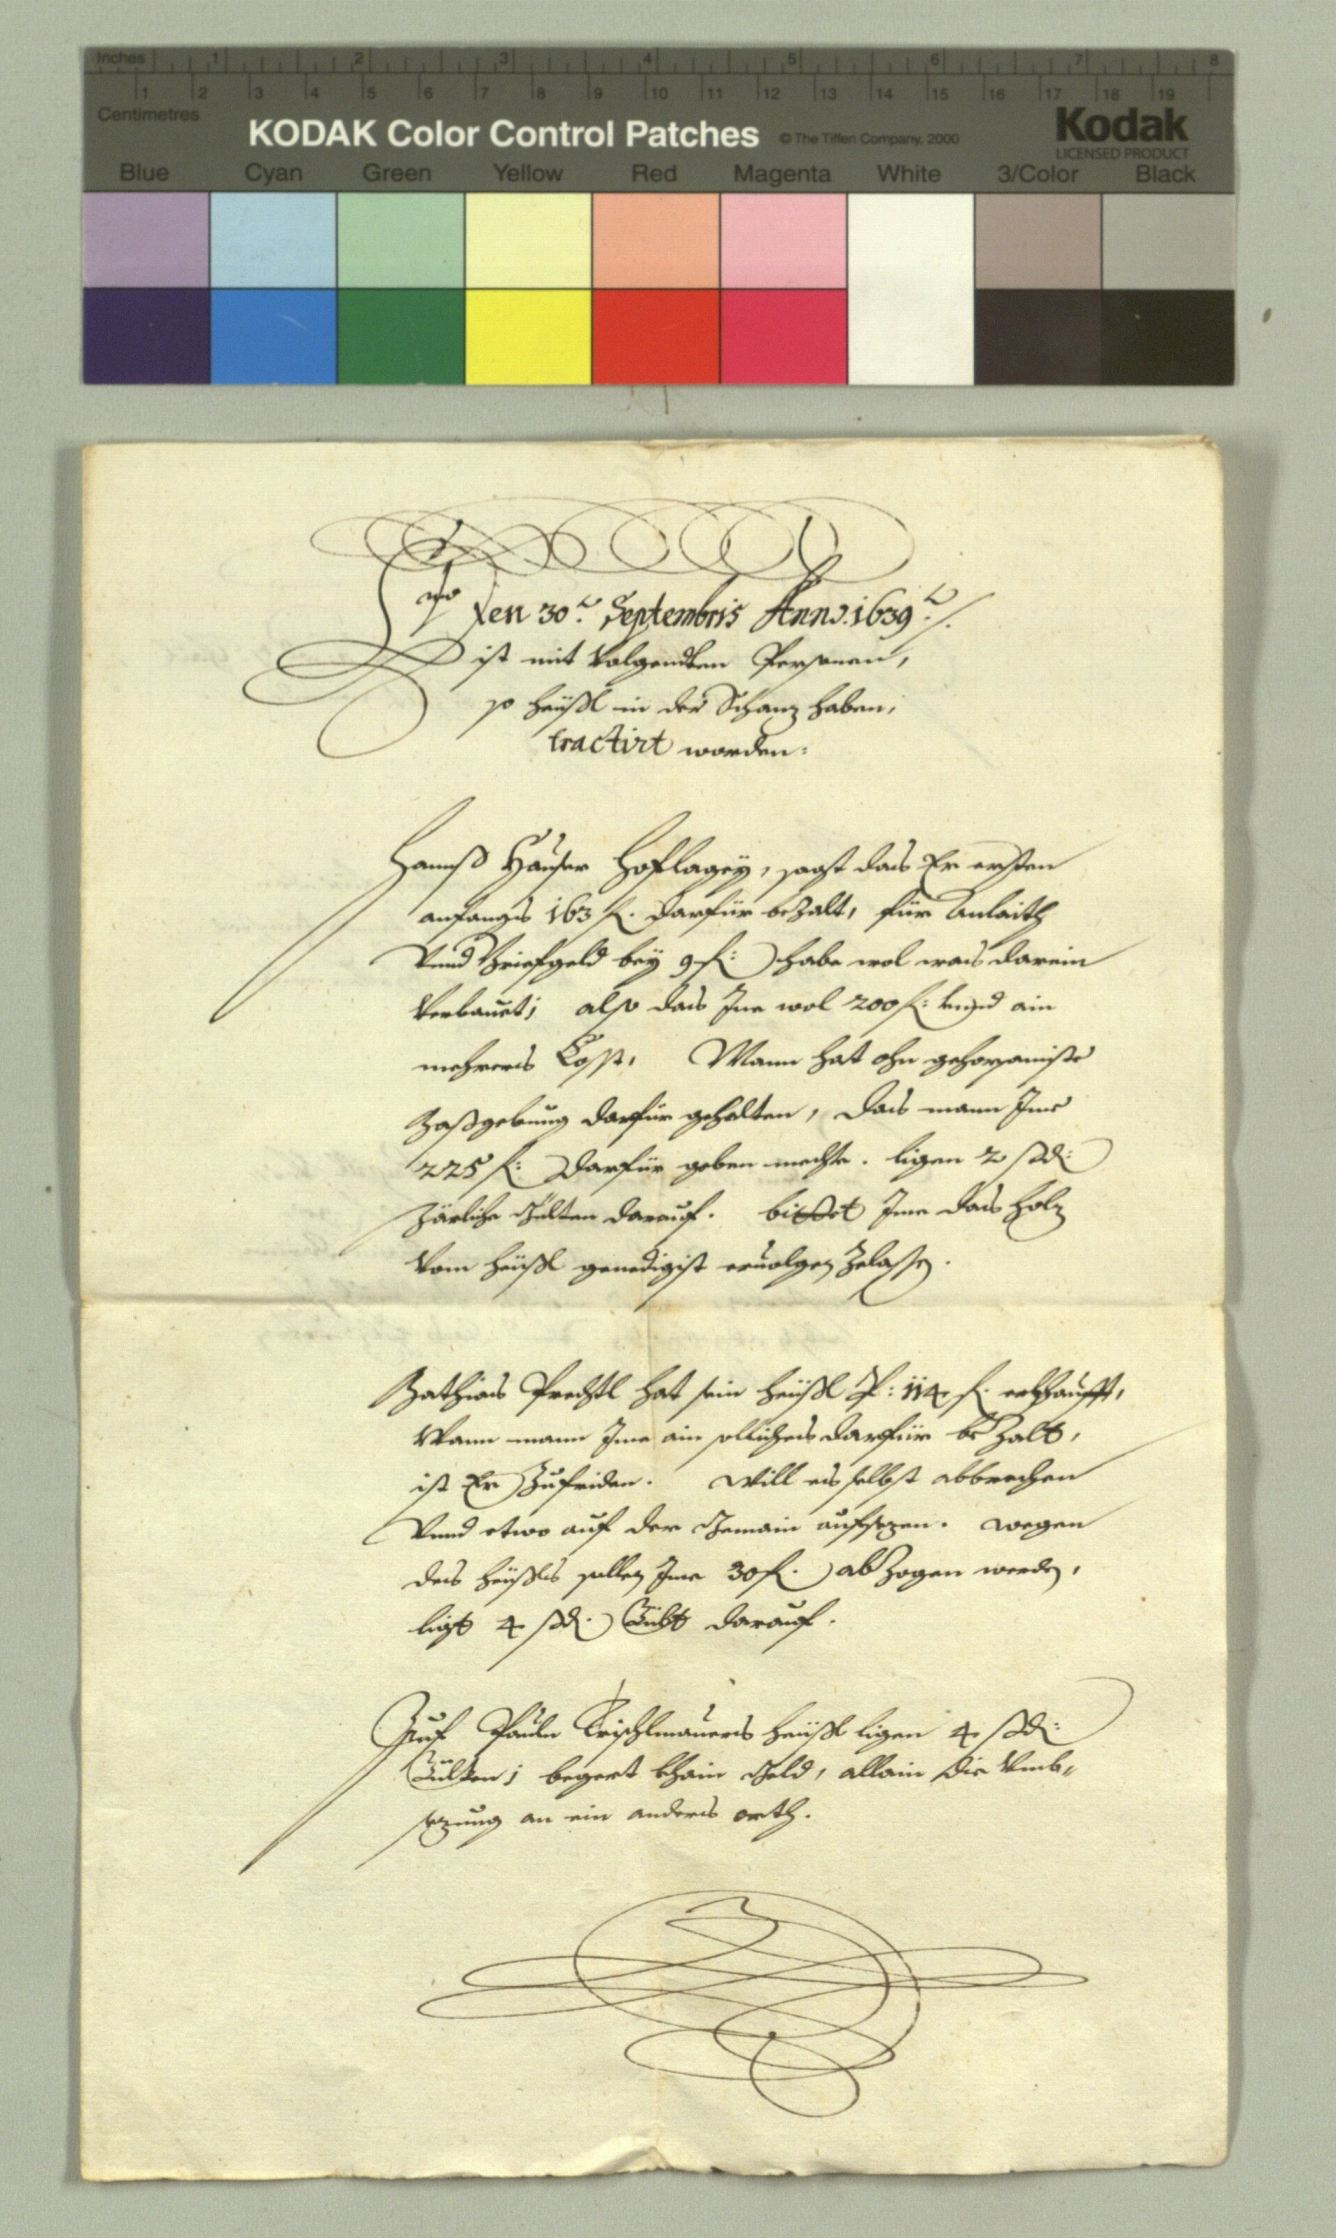 Inches 1 2 3 4 5 6 7 8
1 2 3 4 5 6 7 8 9 10 11 12 13 14 15 16 17 18 19
Centimetres
KODAK Color Control Patches © The Tiffen Company, 2000 Kodak
LICENSED PRODUCT
Blue Cyan Green Yellow Red Magenta White 3/Color Black
Den 30. Septembris Anno. 1639.
ist mit volgendten Personen,
so heüßl in der Schanz haben,
tractirt worden:
Hannß Hauser, sagt das Er ersten
anfangs 163 f. darfür bezalt, für Anlaith
Vnnd Briefgeld bey 9 f: habe wol was darein
verbauet; also das Ime wol 200 f: vnnd ain
mehrers Cosst. Mann hat ohn gehorsamiste
Maßgebung darfür gehalten, das mann Ime
225 f: darfür geben mechte. ligen 2 ßd:
Järliche Gülten darauf. bittet Ime das holz
vom heüßl genedigist eruolgen Zelassen.
Mathias Prechtl hat sein heüßl P: 114 f. erkhaufft,
Wann mann Ime ain solliches darfür bezalt,
ist Er Zufriden. Will es selbst abbrechen
Vnnd etwo auf der Gemain aufsezen. wegen
des heüßls sollen Ime 30 f. abzogen werden,
ligt 4 ßd. Gült darauf.
Auf Pauln heüßl ligen 4 ßd:
Gülten; begert khain Geld, allain die Vmb-
sezung an ein anders orth.